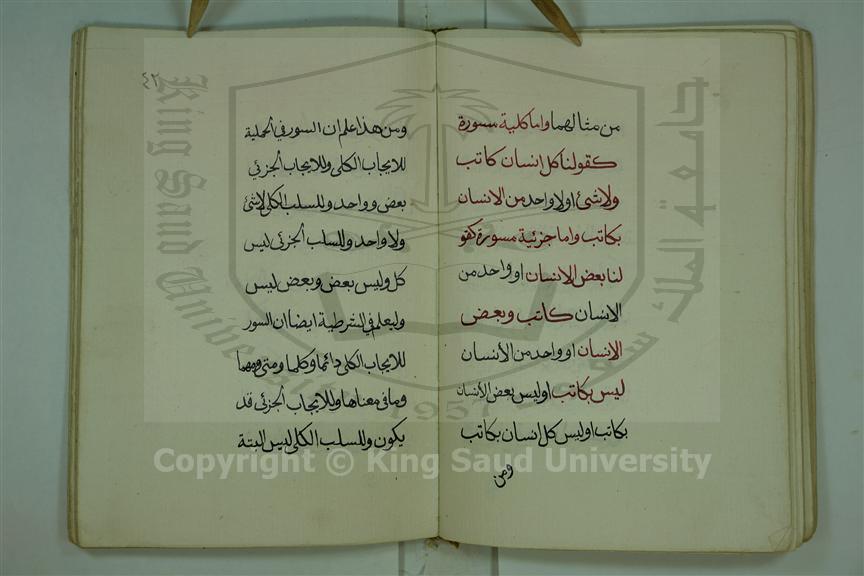 من مثالهما واما كلية مسورة
كقولنا كل انسان كاتب
ولا شئ او لا واحد من الانسان
بكاتب واما جزئية مسورة كقو
لنا بعض الانسان او واحد من
الانسان كاتب وبعض
الانسان او واحد من الأنسان
ليس بكاتب او ليس بعض الأنسان
بكاتب او ليس كل انسان بكاتب
ومن
٤٢
ومن هذا علم ان السور في الحملية
للايجاب الكلى وللايجاب الجزئي
بعض وواحد وللسلب الكلى لا شئ
ولا واحد وللسلب الجزئى ليس
كل وليس بعض وبعض ليس
وليعلم في الشرطية ايضا ان السور
للايجاب الكلى دائما وكلما ومتى ومهما
وما في معناها وللايجاب الجزئى قد
يكون وللسلب الكلى ليس البتة
King Saud University
جامعة الملك سعود
1957
Copyright © King Saud University